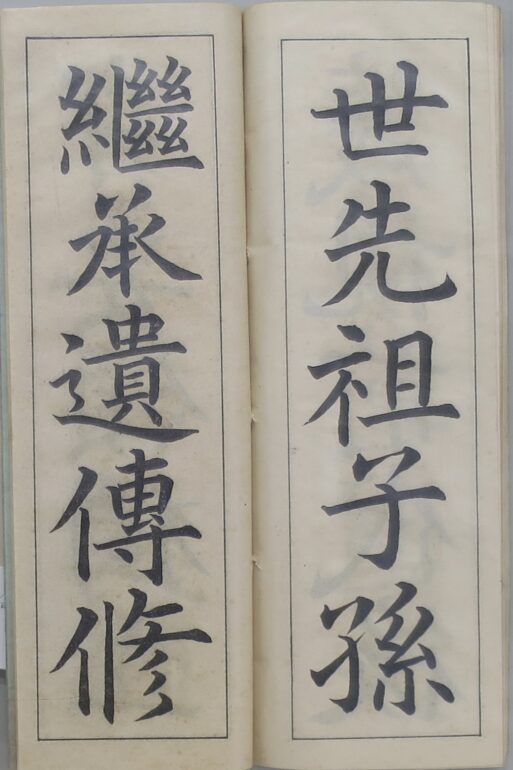 世先祖子孫
繼承遺傳修